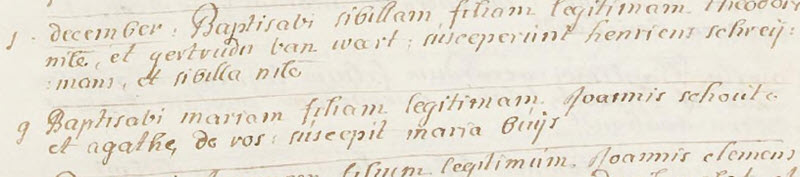 1. december: Baptisavi sibillam filiam legitimam theodori
nitē, et gertrudu van wært; susceperunt henricus schreij:
:mans, et sibilla nitē
9 Baptisavi mariam filiam legitimam Joannis schout
et agathe, de vos: suscepit maria buijs
filium legitimum Joannis clemens